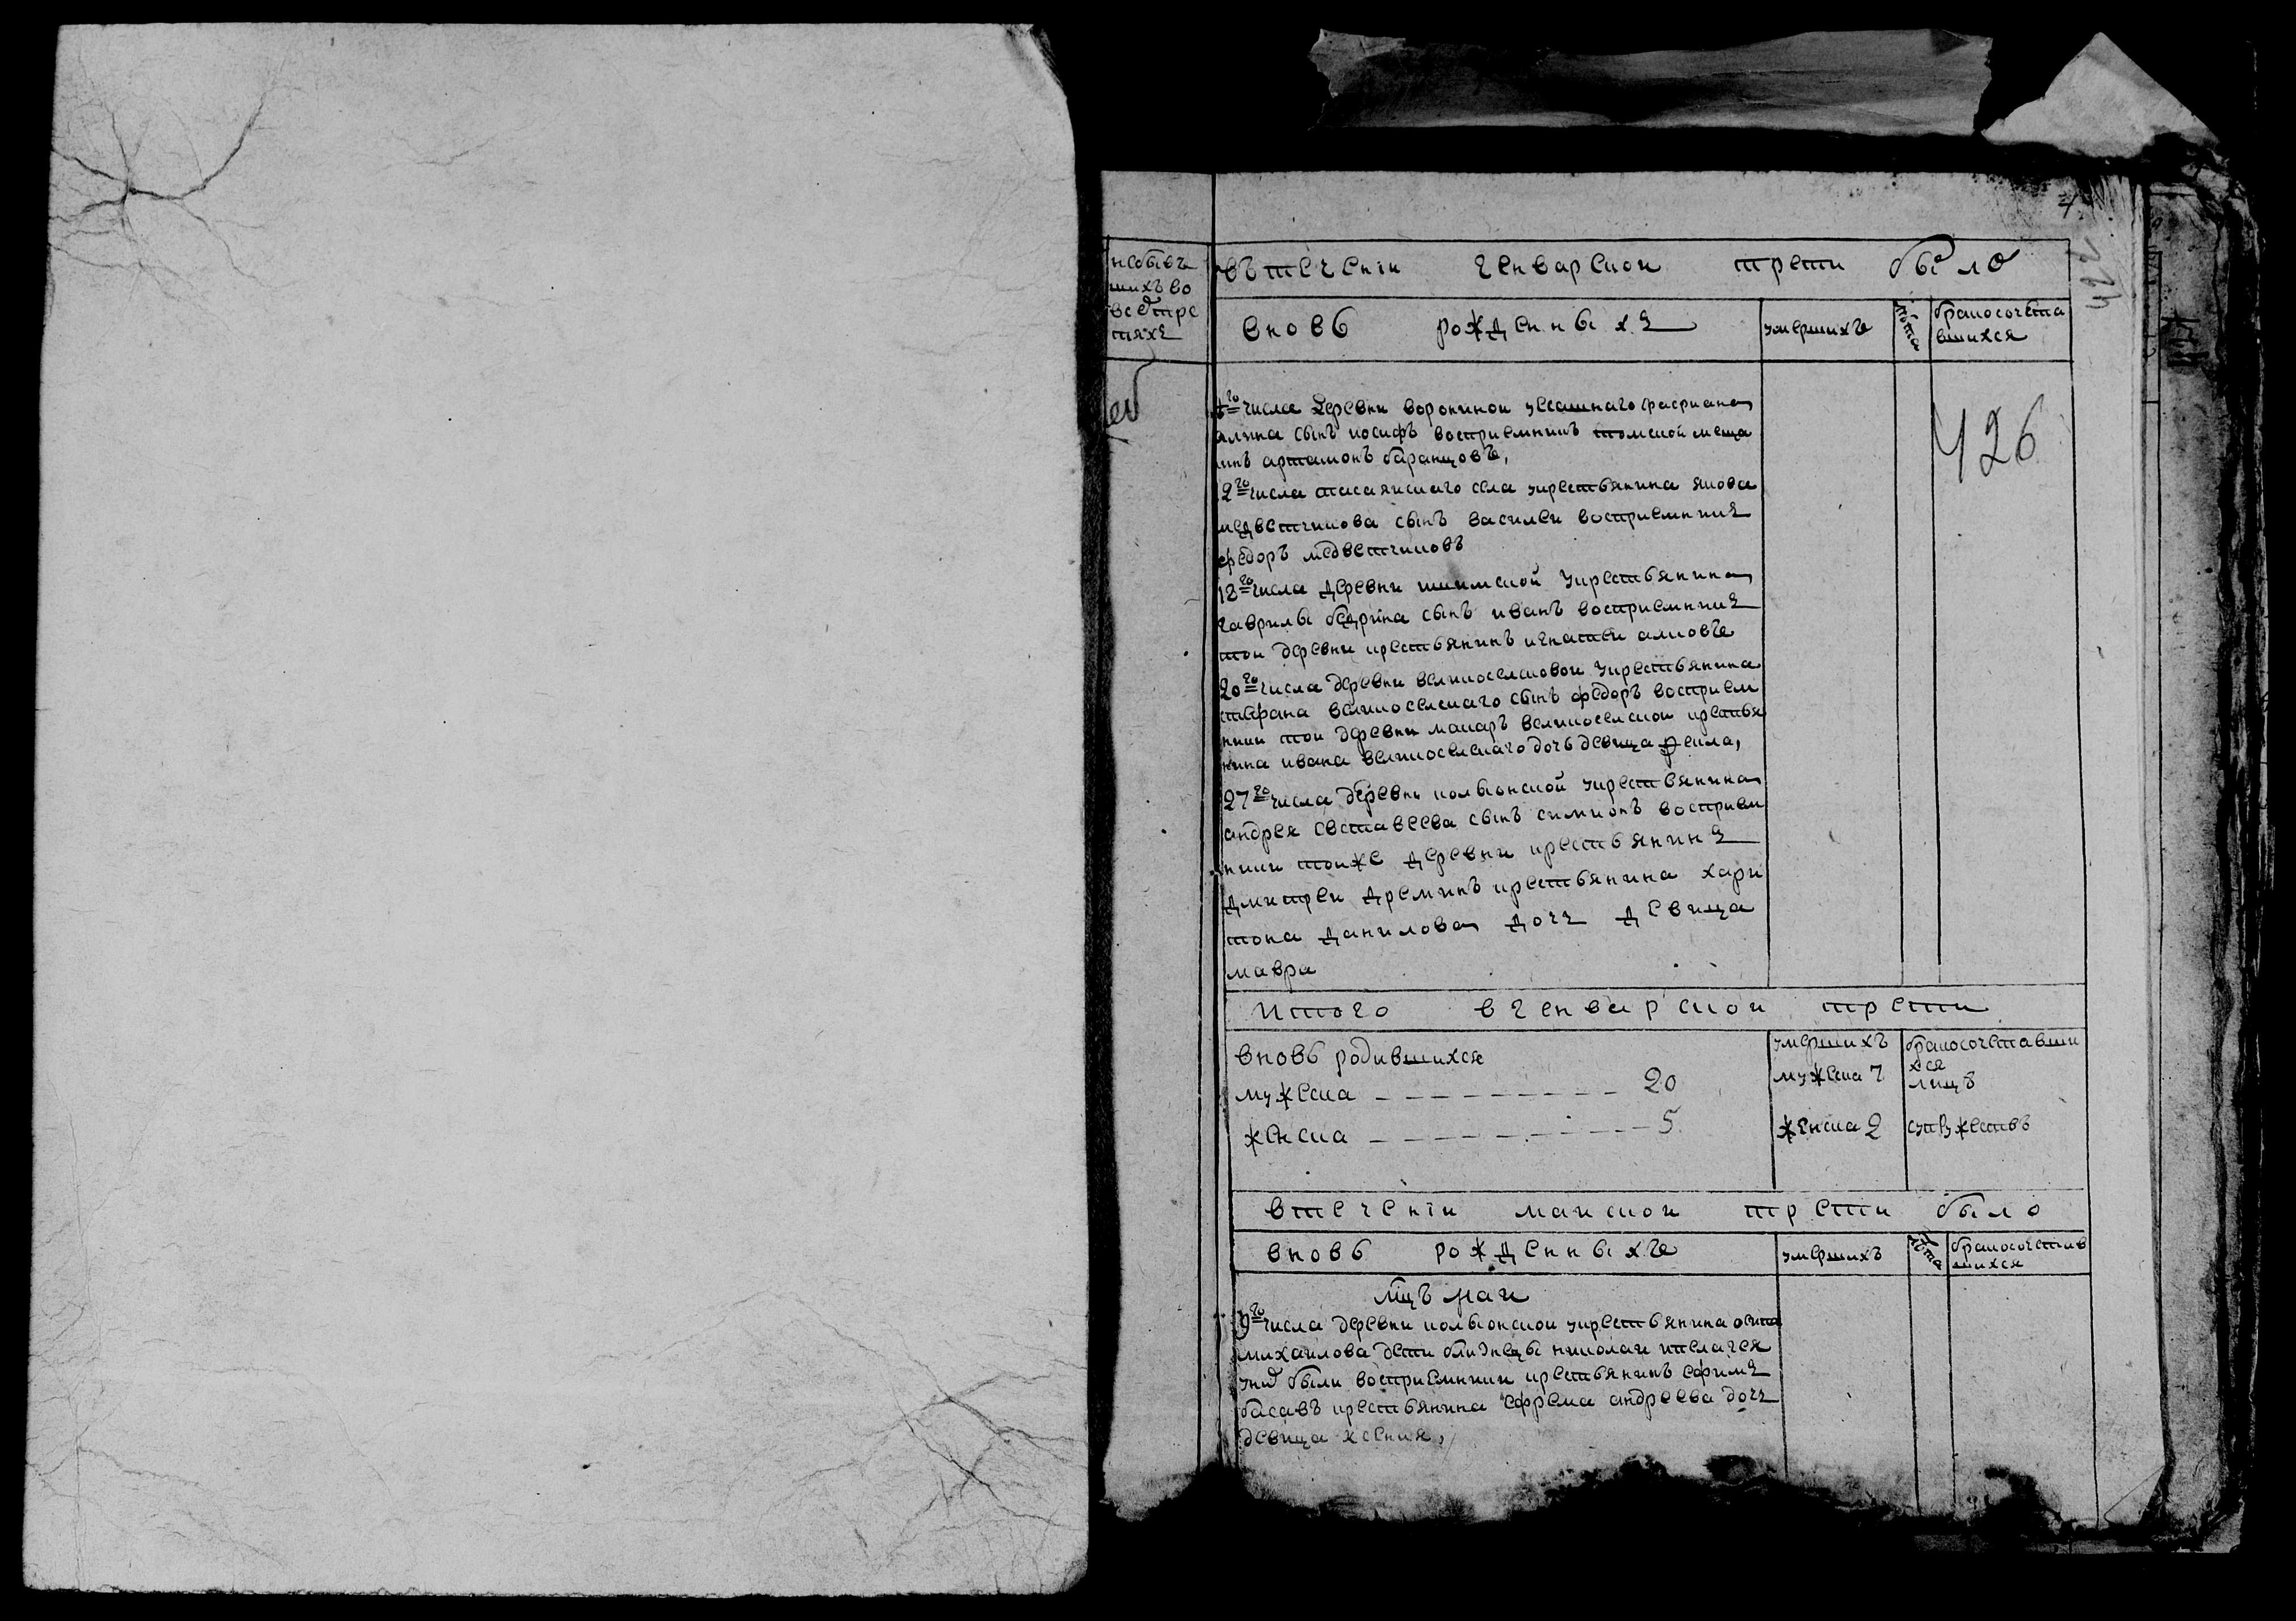 4
422
небывъ
шихъ во
всѣ тре
тяхъ
въ течении генварской трети было
вновь рожденныхъ
умершихъ
лѣта
бракосочета
вшихся
426
числа деревни воронинои уясашнаго
сынъ иосифъ восприемникъ томской меща
нинъ артамонъ баранцовъ,
12го числа спасаяискаго села укрестьянина якова
медветчикова сынъ василеи восприемникъ
федоръ медветчиковъ
18го числа деревни шимской укрестьянина
гаврилы бедрина сынъ иванъ восприемникъ
тои деревни крестьянинъ игнатеи алиовъ
20го числа деревни великоселковои укрестьянина
стефана великоселскаго сынъ федоръ восприем
ники тои деревни макаръ великоселскои крестья
нина ивана великоселскаго дочь девица фекла,
27го числа деревни колыонской укрестьянина
андрея евставеева сынъ симионъ восприем
ники тоиже деревни крестьянинъ
дмитреи дреминъ крестьянина хари
тона данилова дочь девица
мавра
итого вгенварской трети
вновь родившихся
мужеска 20
женска 5
умершихъ
мужеска 7
женска 2
бракосочетавши
хся
лицъ
супружествъ
втечении маискои трети было
вновь рожденныхъ
умершихъ
лѣта
бракосочетав
шихся
мцъ маи
9го числа деревни колыонскои укрестьянина осипа
михаилова дети близнецы николаи ипелагея
унихъ были восприемники крестьянинъ ефимъ
басавъ крестьянина ефрема андреева дочь
девица ксения,